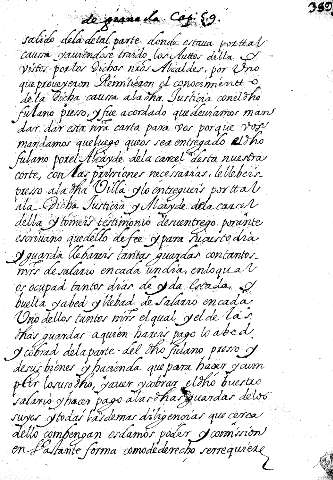 de granada Cap. 59. 389
salido dela de tal parte donde estaua por tal
causa y auiendose traido los Autos della y
vistos por los dichos nros Alcaldes, por Uno
que proueyeron Remitieron el conocimento
de la dicha causa ala dha Justicia con el dho
fulano preso, y fue acordado que deuiamos man
dar dar esta nra carta para vos por que vos
mandamos que luego que os sea entregado el dho
fulano por el Alcayde de la carcel desta nuestra
corte, con las prisiones necessarias, le lleueis
preso ala dha Villa y lo entregueis por tal
ala dicha Justicia y Alcayde de la carcel
della y tomeis testimonio desu entrego por ante
escriuano que dello de fee y para lleuarle dia
y guarda lleuareis tantas guardas con tantos
mrs de salario en cada un dia, en lo qual
es ocupad tantos dias de yda estada, y
buelta y abed y llebad de salario en cada
Uno dellos tantos mrs el qual y el de las
dhas guardas a quien hareis pago lo abed
y cobrad de la parte del dho fulano preso y
de sus bienes y hacienda que para hacer y cum
plir lo susodho, y auer y cobrar el dho buestro
salario y hacer pago a las dhas guardas de los
suyos y todas las demas diligencias que cerca
dello conuengan os damos poder y comission
en bastante forma como de derecho se requiere